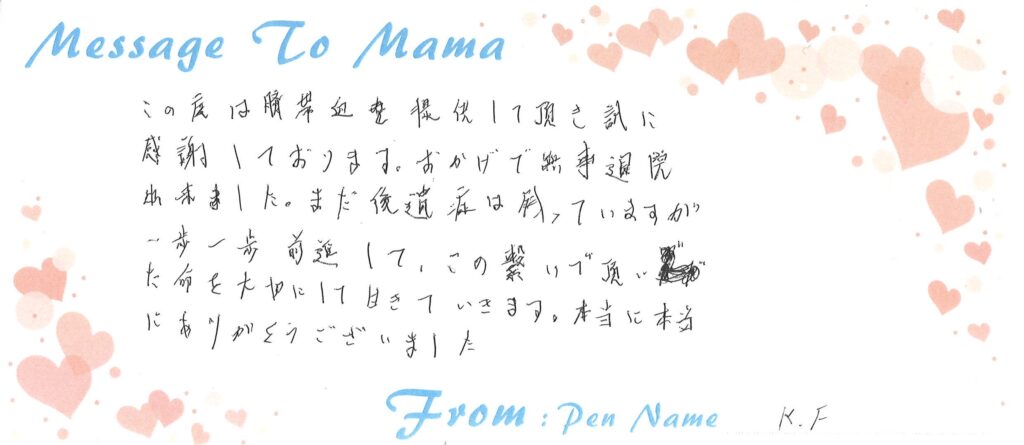 Message To Mama
この度は臍帯血を提供して頂き誠に
感謝しております。おかげで無事退院
出来ました。まだ後遺症は残っていますが
一歩一歩前進して、この繋いで頂い
た命を大切にして生きていきます。本当に本当
にありがとうございました
From : Pen Name K.F